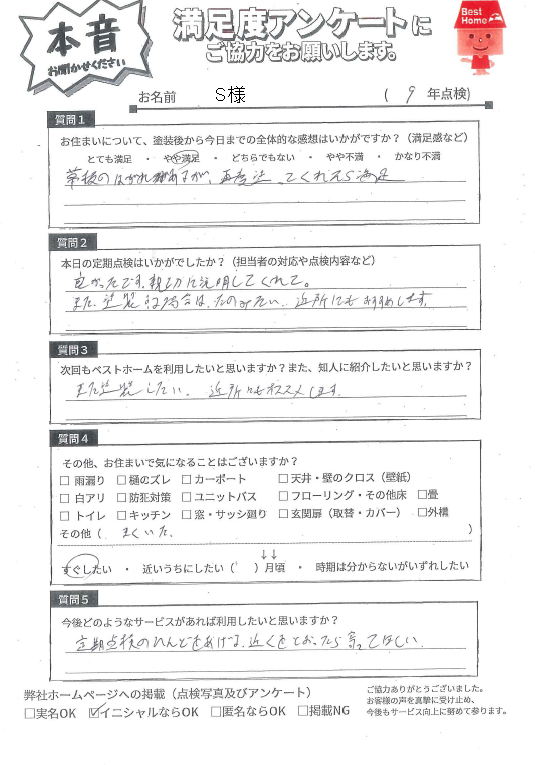 本音
お聞かせください
満足度アンケートに
ご協力をお願いします。
Best Home
お名前 S様 ( 9 年点検)
質問1
お住まいについて、塗装後から今日までの全体的な感想はいかがですか？（満足感など）
とても満足 ・ やや満足 ・ どちらでもない ・ やや不満 ・ かなり不満
のはがれ がありますが、再度塗 てくれたら満足
質問2
本日の定期点検はいかがでしたか？（担当者の対応や点検内容など）
良かったです。親切に説明してくれて。
また、塗装する場合は、たのみたい。近所にもおすすめします。
質問3
次回もベストホームを利用したいと思いますか？また、知人に紹介したいと思いますか？
また塗装したい。近所にもオススメします。
質問4
その他、お住まいで気になることはございますか？
□ 雨漏り □ 樋のズレ □ カーポート □ 天井・壁のクロス（壁紙）
□ 白アリ □ 防犯対策 □ ユニットバス □ フローリング・その他床 □畳
□ トイレ □ キッチン □ 窓・サッシ廻り □ 玄関扉（取替・カバー） □外構
その他（ まくいた ）
↓↓
すぐしたい ・ 近いうちにしたい（ ）月頃 ・ 時期は分からないがいずれしたい
質問5
今後どのようなサービスがあれば利用したいと思いますか？
定期点検のひんどをあげる。近くをとおったら寄ってほしい。
弊社ホームページへの掲載（点検写真及びアンケート）
□実名OK ☑イニシャルならOK □匿名ならOK □掲載NG
ご協力ありがとうございました。
お客様の声を真摯に受け止め、
今後もサービス向上に努めて参ります。